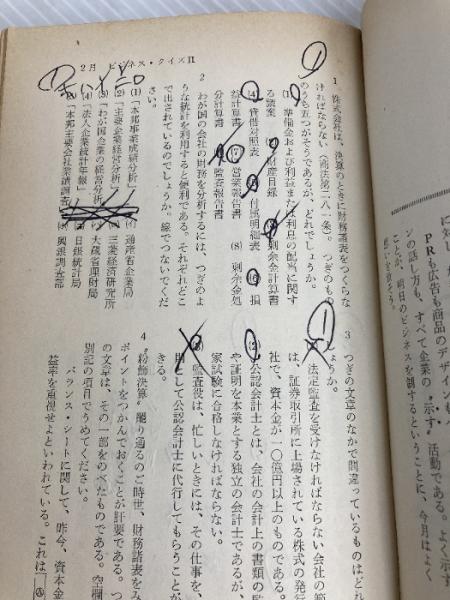 2月 ビジネス・クイズⅡ
1 株式会社は、決算のときに財務諸表をつくらな
ければならない（商法第二八一条）。つぎのもの
のうち五つがそうであるが、どれでしょうか。
(1) 準備金および利益または利息の配当に関す
る議案
(2) 財産目録
剰余金計算書
(4) 貸借対照表
付属明細表
(6) 損
益計算書
(7) 営業報告書
(8) 剰余金処
分計算書
監査報告書
2 わが国の会社の財務を分析するには、つぎのよ
うな統計を利用すると便利である。それぞれどこ
で出されているのでしょうか。線でつないでくだ
さい。
(1)「本邦事業成績分析」
通産省企業局
(2)「主要企業経営分析」
三菱経済研究所
(3)「わが国企業の経営分析」
大蔵省理財局
(4)「法人企業統計年報」
日銀統計局
「本邦主要会社業績調査」
興銀調査部
3 つぎの文章のなかで間違っているものはどれ
しょうか。
法定監査を受けなければならない会社の範
は、証券取引所に上場されている株式の発行
社で、資本金が一〇億円以上のものである。
(2) 公認会計士とは、会社の会計上の書類の監
や証明を本業とする独立の会計士であるが、
家試験に合格しなければならない。
監査役は、忙しいときには、その仕事を、
として公認会計士に代行してもらうことが
きる。
4 〝粉飾決算〟罷り通るのご時世、財務諸表をみ
ポイントをつかんでおくことが肝要である。つ
の文章は、その一部をのべたものである。空欄
別記の項目でうめてください。
バランス・シートに関して、昨今、資本金
益率を重視せよといわれている。これは
に対し
PRも広告も商品のデザイン
ンの話し方も、すべて企業の〝示す〟活動である。よく示す
ことが、明日のビジネスを制するということに、今月はよく